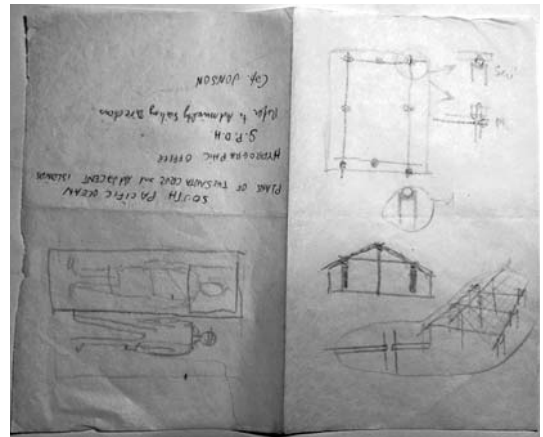 SOUTH PACIFIC OCEAN
PLANS OF THE SANTA CRUZ and ADJACENT ISLANDS
HYDROGRAPHIC OFFICE
S.P.D.H
Refer to Admiralty Sailing Direction
Cap. JONSON